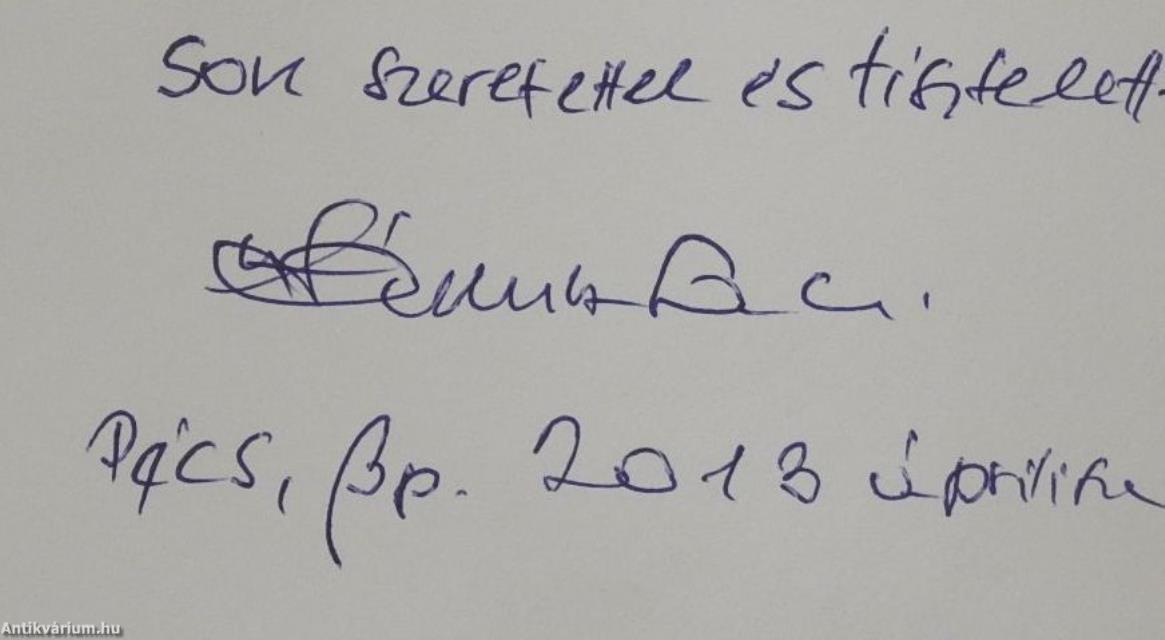 Sok szeretettel és tisztelett
Pécs, Bp. 2013 április
Antikvárium.hu